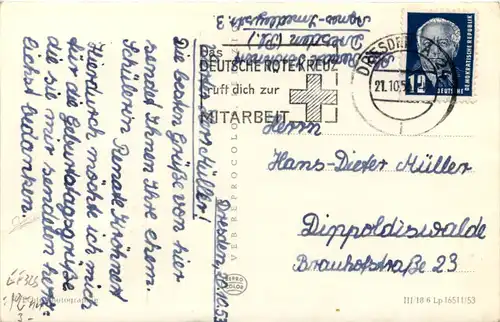 Das
DEUTSCHE ROTE KREUZ
ruft dich zur
MITARBEIT
21.10.5
DEUTSCHE
DEMOKRATISCHE REPUBLIK
12
Herrn
Hans-Dieter Müller
Dippoldiswalde
Brauhofstraße 23
Dresden,
Müller!
Die besten Grüße von hier
sendet Ihnen Ihre ehem.
Schülerin Renate
Hierdurch möchte ich mich
für die Geburtstagsgrüße
die sie mir sendeten herz-
lichst bedanken.
VEB REPROCOLOR
III 18 6 Lp 16511/53